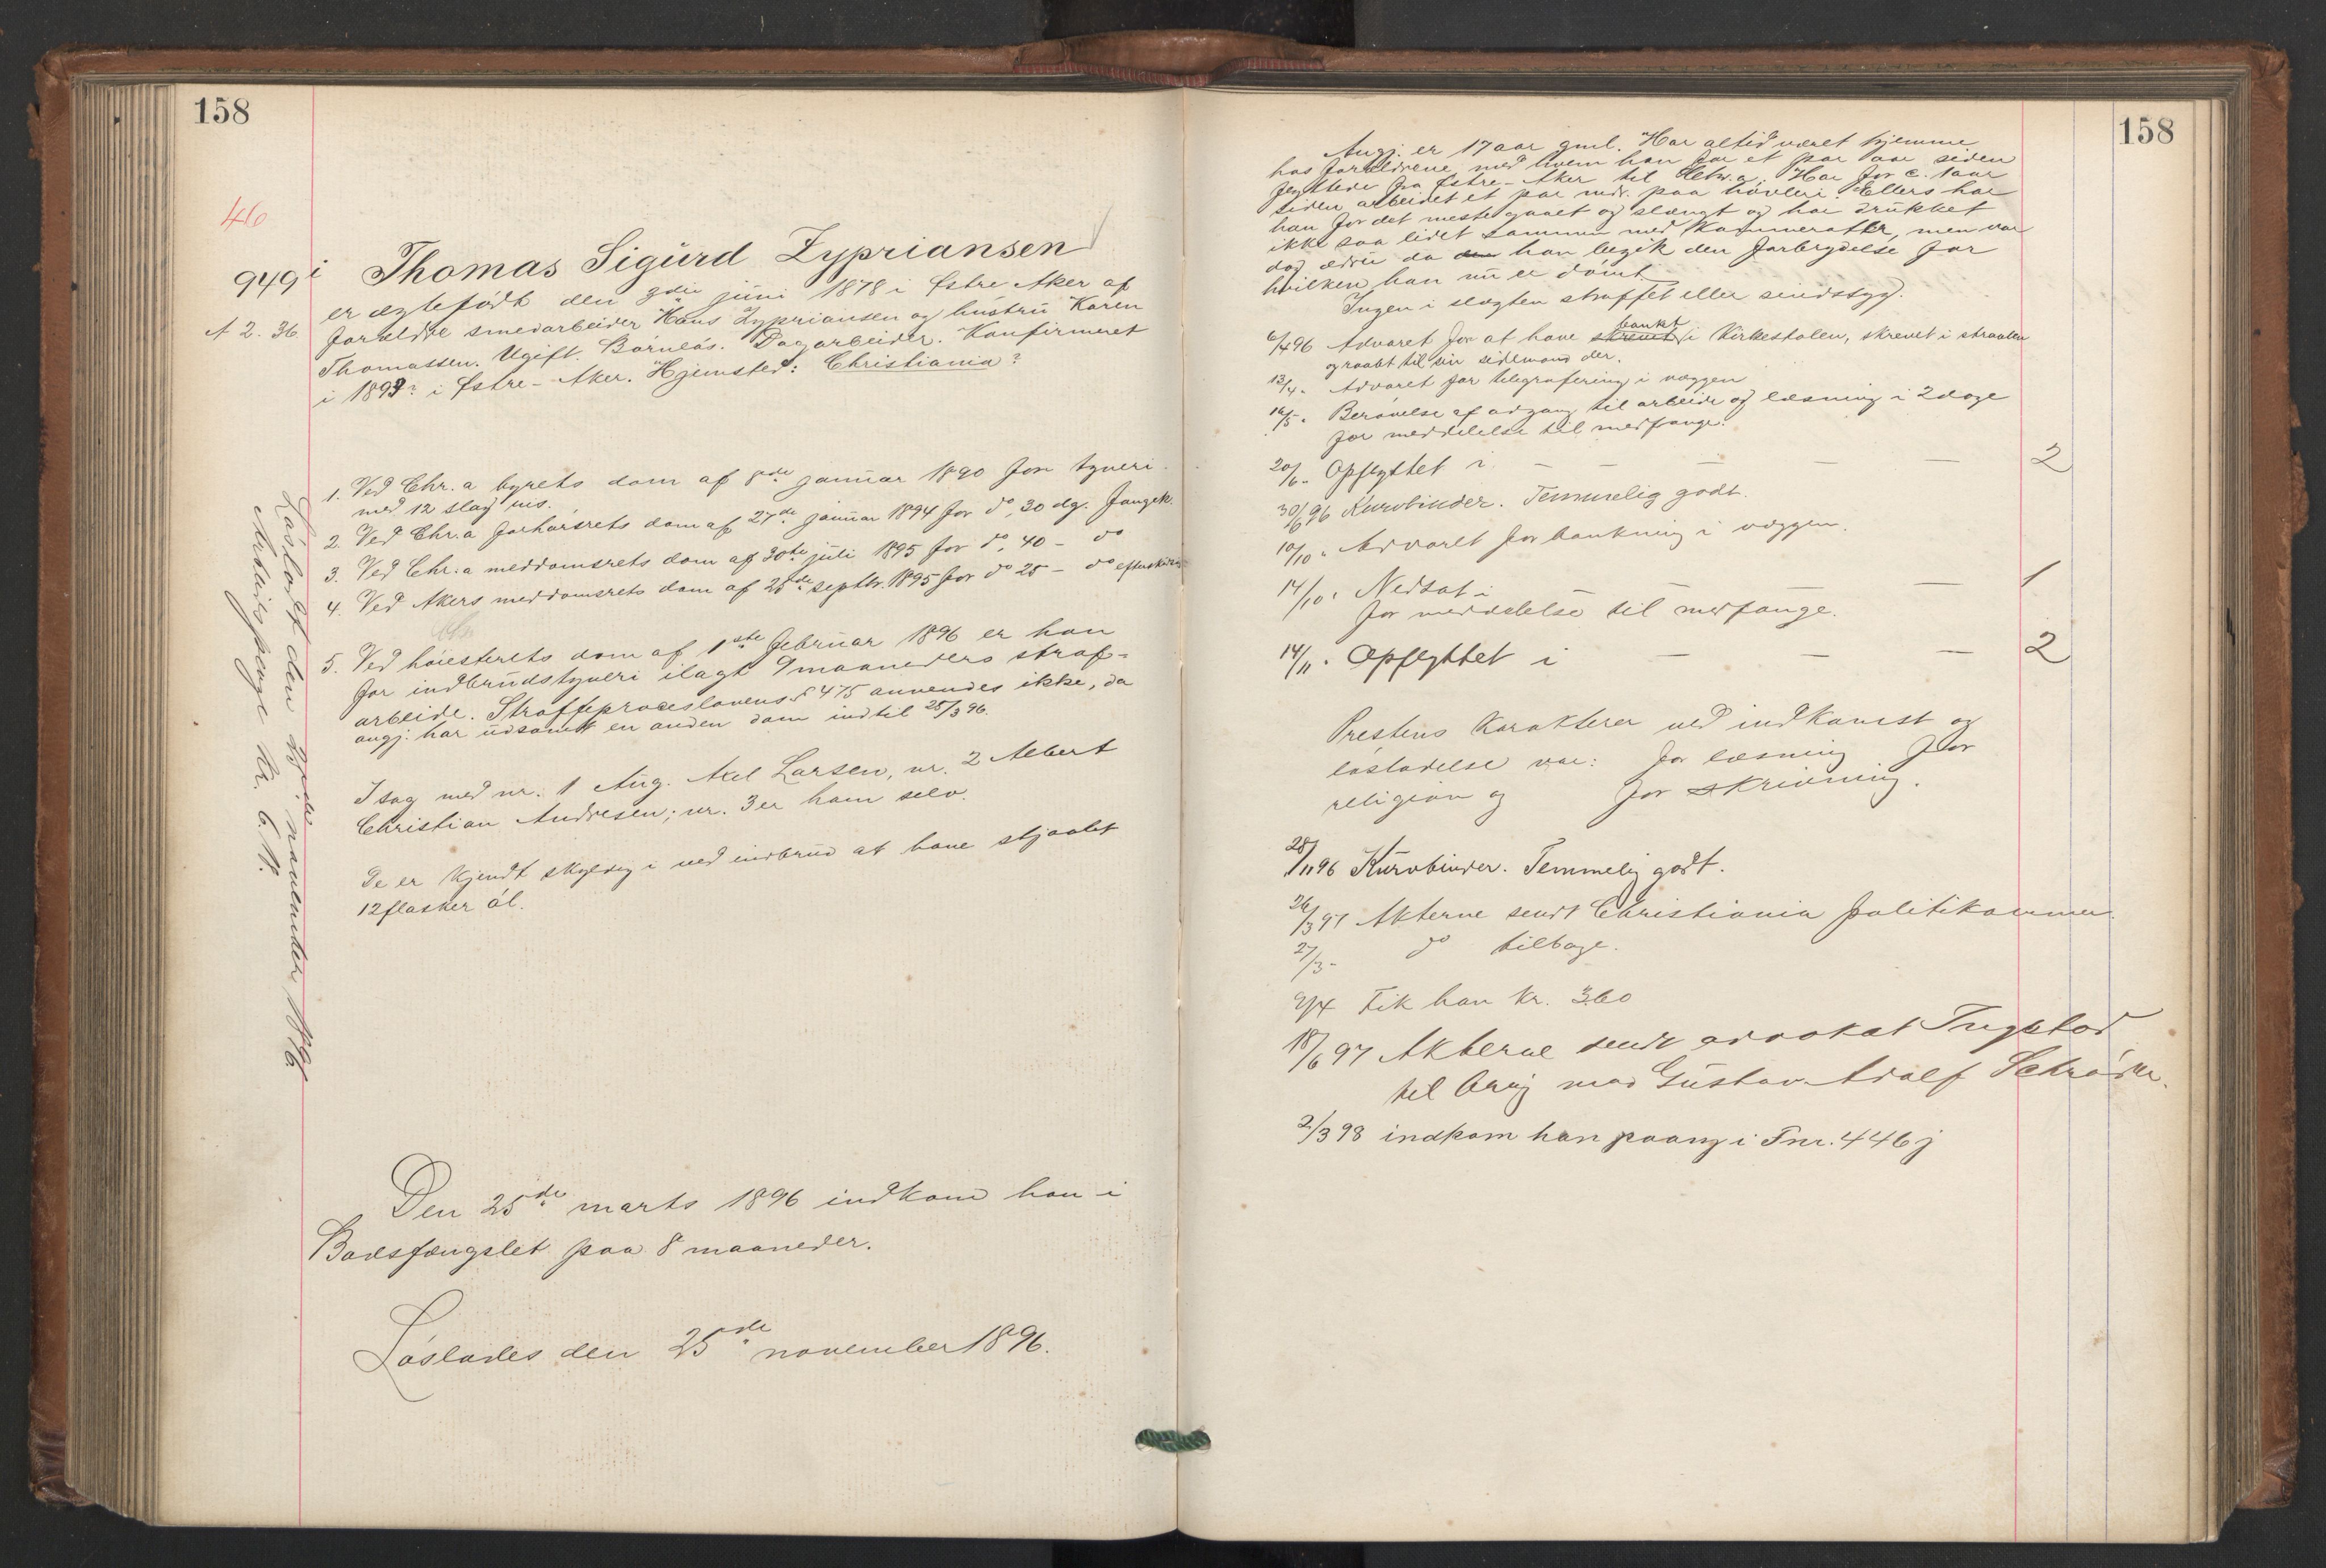 158
46
949 i Thomas Sigurd Zypriansen
er ægtefødt den 9de juni 1878 i Østre Aker af
A 2. 36. forældre smedarbeider Hans Zypriansen og hustru Karen
Thomassen. Ugift. Barnløs. Dagarbeider. Konfirmeret
i 1893? i Østre-Aker. Hjemsted: Christiania?
1. Ved Chr.a byrets dom af 8de januar 1890 for tyveri
med 12 slag ris.
2. Ved Chr.a forhørsrets dom af 27de januar 1894 for do, 30 dg. fængsel.
3. Ved Chr.a meddomsrets dom af 30te juli 1895 for do, 40 - do
4. Ved Akers meddomsrets dom af 25de septbr. 1895 for do 25 - do
5. Ved høiesterets dom af 1ste februar 1896 er han
for indbrudstyveri ilagt 9 maaneders straf-
arbeide. Straffeproceslovens § 475 anvendes ikke, da
angj. har udsonet en anden dom indtil 25/3 96.
I sag med nr. 1 Aug. Axel Larsen, nr. 2 Albert
Christian Andresen; nr. 3 er ham selv.
De er kjendt skyldig i ved indbrud at have stjaalet
12 flasker øl.
Løsladt den november 1896
Arbeidspenge kr. 6.
Den 25de marts 1896 indkom han i
Bodsfængslet paa 8 maaneder.
Løslades den 25de november 1896.
158
Angj. er 17 aar gml. Har altid været hjemme
hos forældrene, med hvem han for et par aar siden
flyttede fra Østre-Aker til Chr.a. Har for c. 1 aar
siden arbeidet et par mdr. paa høvleri. Ellers har
han for det meste gaaet og slængt og har drukket
ikke saa lidet sammen med kammerater, men var
dog ædru da han begik den forbrydelse for
hvilken han nu er dømt.
Ingen i slægten straffet eller sindssyg.
banket
6/4 96 Advaret for at have skrevet i kirkestolen, skrevet i straalen
og raabt til sin sidemand der.
13/4 " Advaret for telegrafering i væggen
16/5 " Berøvelse af adgang til arbeide og læsning i 2 dage
for meddelelse til medfange.
20/6 " Opflyttet i — — — — — 2
30/6 96 Kurvbinder. Temmelig godt.
10/10 " Advaret for bankning i væggen.
14/10 " Nedsat i — — — 1
for meddelelse til medfange.
14/11 " Opflyttet i — — — 2
Prestens karakterer ved indkomst og
løsladelse var: for læsning for
religion og for skrivning.
25/11 96 Kurvbinder. Temmelig godt.
26/3 97 Akterne sendt Christiania politikammer
27/3 - do tilbage.
9/4 Fik han kr. 3.60
18/6 97 Akterne sendt advokat Tugstad
til brug mod Gustav Adolf Schrøder.
2/3 98 indkom han paany i Fnr. 446 j